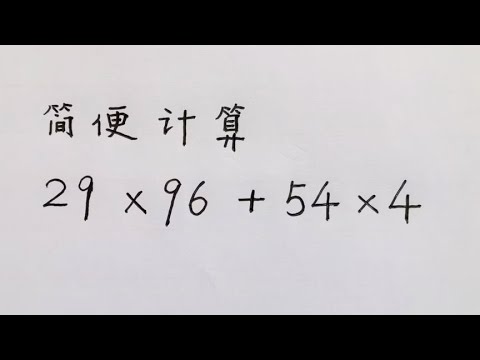 简便计算
29 × 96 + 54 × 4